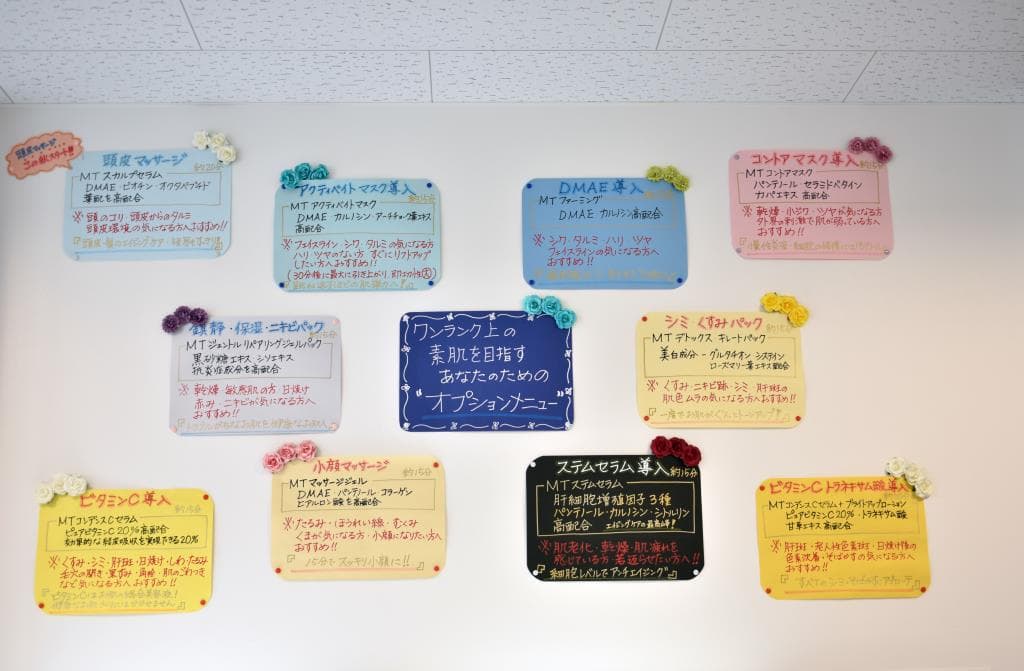 頭皮マッサージ
この秋スタート!!
頭皮マッサージ
約20分
MTスカルプセラム
DMAE・ビオチン・オクタペプチド
葉配を高配合
※頭のコリ・頭皮からのタルミ
頭皮環境の気になる方へおすすめ!!
アクティバイトマスク導入
約15分
MTアクティバイトマスク
DMAE カルノシン・アーチチョーク葉エキス
高配合
※フェイスライン・シワ・タルミの気になる方
ハリ・ツヤのない方 すぐにリフトアップ
したい方へおすすめ!!
(30分後に最大に引き上がり、即エカ性大)
DMAE導入
約15分
MTファーミング
DMAE カルノシン高配合
※シワ・タルミ・ハリ・ツヤ
フェイスラインの気になる方へ
おすすめ!!
コントアマスク導入
約15分
MTコントアマスク
パンテノール・セラミドベタイン
カバエキス 高配合
※乾燥・小ジワ・ツヤが気になる方
外界の刺激で肌が弱っている方へ
おすすめ!!
鎮静・保湿・ニキビパック
約15分
MTジェントルリペアリングジェルパック
黒砂糖エキス・シソエキス
抗炎症成分を高配合
※乾燥・敏感肌の方・日焼け
赤み・ニキビが気になる方へ
おすすめ!!
ワンランク上の
素肌を目指す
あなたのための
"オプションメニュー"
シミ・くすみパック
約15分
MTデトックス キレートパック
美白成分-グルタチオン システイン
ローズマリー葉エキス配合
※くすみ・ニキビ跡・シミ・肝斑の
肌色ムラの気になる方へ
おすすめ!!
ビタミンC導入
約15分
MTコンデンスCセラム
ピュアビタミンC20%高配合
効果的な経皮吸収を実現できる20%
※くすみ・シミ・肝斑・日焼け・しわ・たるみ
毛穴の開き・黒ずみ・角栓・肌のごわつき
など気になる方へおすすめ!!
小顔マッサージ
約15分
MTマッサージジェル
DMAE・パンテノール・コラーゲン
ヒアルロン酸を高配合
※たるみ・ほうれい線・むくみ
くまが気になる方・小顔になりたい方へ
おすすめ!!
『15分でスッキリ小顔に!!』
ステムセラム導入
約15分
MTステムセラム
肝細胞増殖因子3種
パンテノール・カルノシン・シトルリン
高配合 エイジングケアの最高峰!
※肌老化・乾燥・肌疲れを
感じている方・若返らせたい方へ
おすすめ!!
『細胞レベルでアンチエイジング』
ビタミンCトラネキサム酸導入
約15分
MTコンデンスCセラム+ブライトアップローション
ピュアビタミンC20%・トラネキサム酸
甘草エキス高配合
※肝斑・老人性色素斑・日焼け後の
色素沈着・そばかすの気になる方へ
おすすめ!!